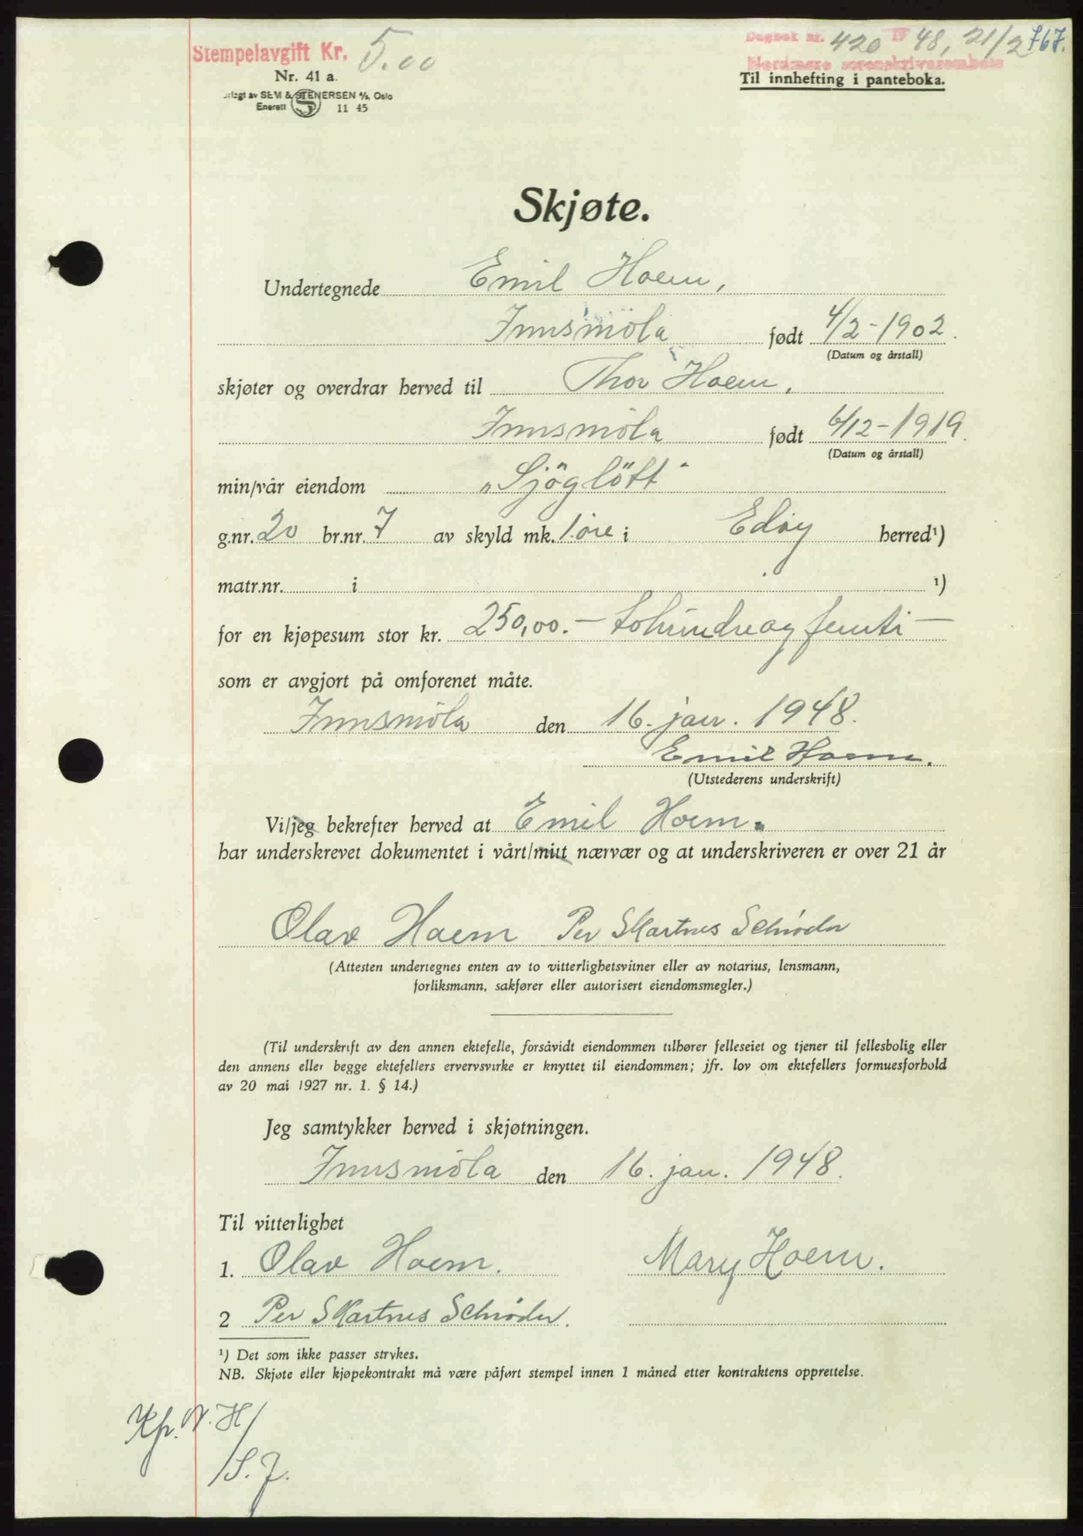 Stempelavgift Kr. 5.00
Dagbok nr. 420 19 48, 21/2 767.
Nordmøre sorenskriverembete
Nr. 41 a.
Til innhefting i panteboka.
SEM & STENERSEN A/S, Oslo
Enerett S 11 45
Skjøte.
Undertegnede Emil Hoem,
Innsmöla født 4/2-1902.
(Datum og årstall)
skjøter og overdrar herved til Thor Hoem,
Innsmöla født 6/12-1919.
(Datum og årstall)
min/vår eiendom „Sjöglött"
g.nr. 20 br.nr. 7 av skyld mk. 1 øre i Edøy herred¹)
matr.nr. i ¹)
for en kjøpesum stor kr. 250,00.- tohundreogfemti -
som er avgjort på omforenet måte.
Innsmöla den 16. jan. 1948.
Emil Hoem.
(Utstederens underskrift)
Vi/jeg bekrefter herved at Emil Hoem.
har underskrevet dokumentet i vårt/mitt nærvær og at underskriveren er over 21 år
Olav Hoem Per Skartnes Schrøder
(Attesten undertegnes enten av to vitterlighetsvitner eller av notarius, lensmann,
forliksmann, sakfører eller autorisert eiendomsmegler.)
(Til underskrift av den annen ektefelle, forsåvidt eiendommen tilhører felleseiet og tjener til fellesbolig eller
den annens eller begge ektefellers ervervsvirke er knyttet til eiendommen; jfr. lov om ektefellers formuesforhold
av 20 mai 1927 nr. 1. § 14.)
Jeg samtykker herved i skjøtningen.
Innsmöla den 16. jan. 1948.
Til vitterlighet
1. Olav Hoem. Mary Hoem.
2 Per Skartnes Schrøder.
¹) Det som ikke passer strykes.
NB. Skjøte eller kjøpekontrakt må være påført stempel innen 1 måned etter kontraktens opprettelse.
Kp. N. H/
/S. J.